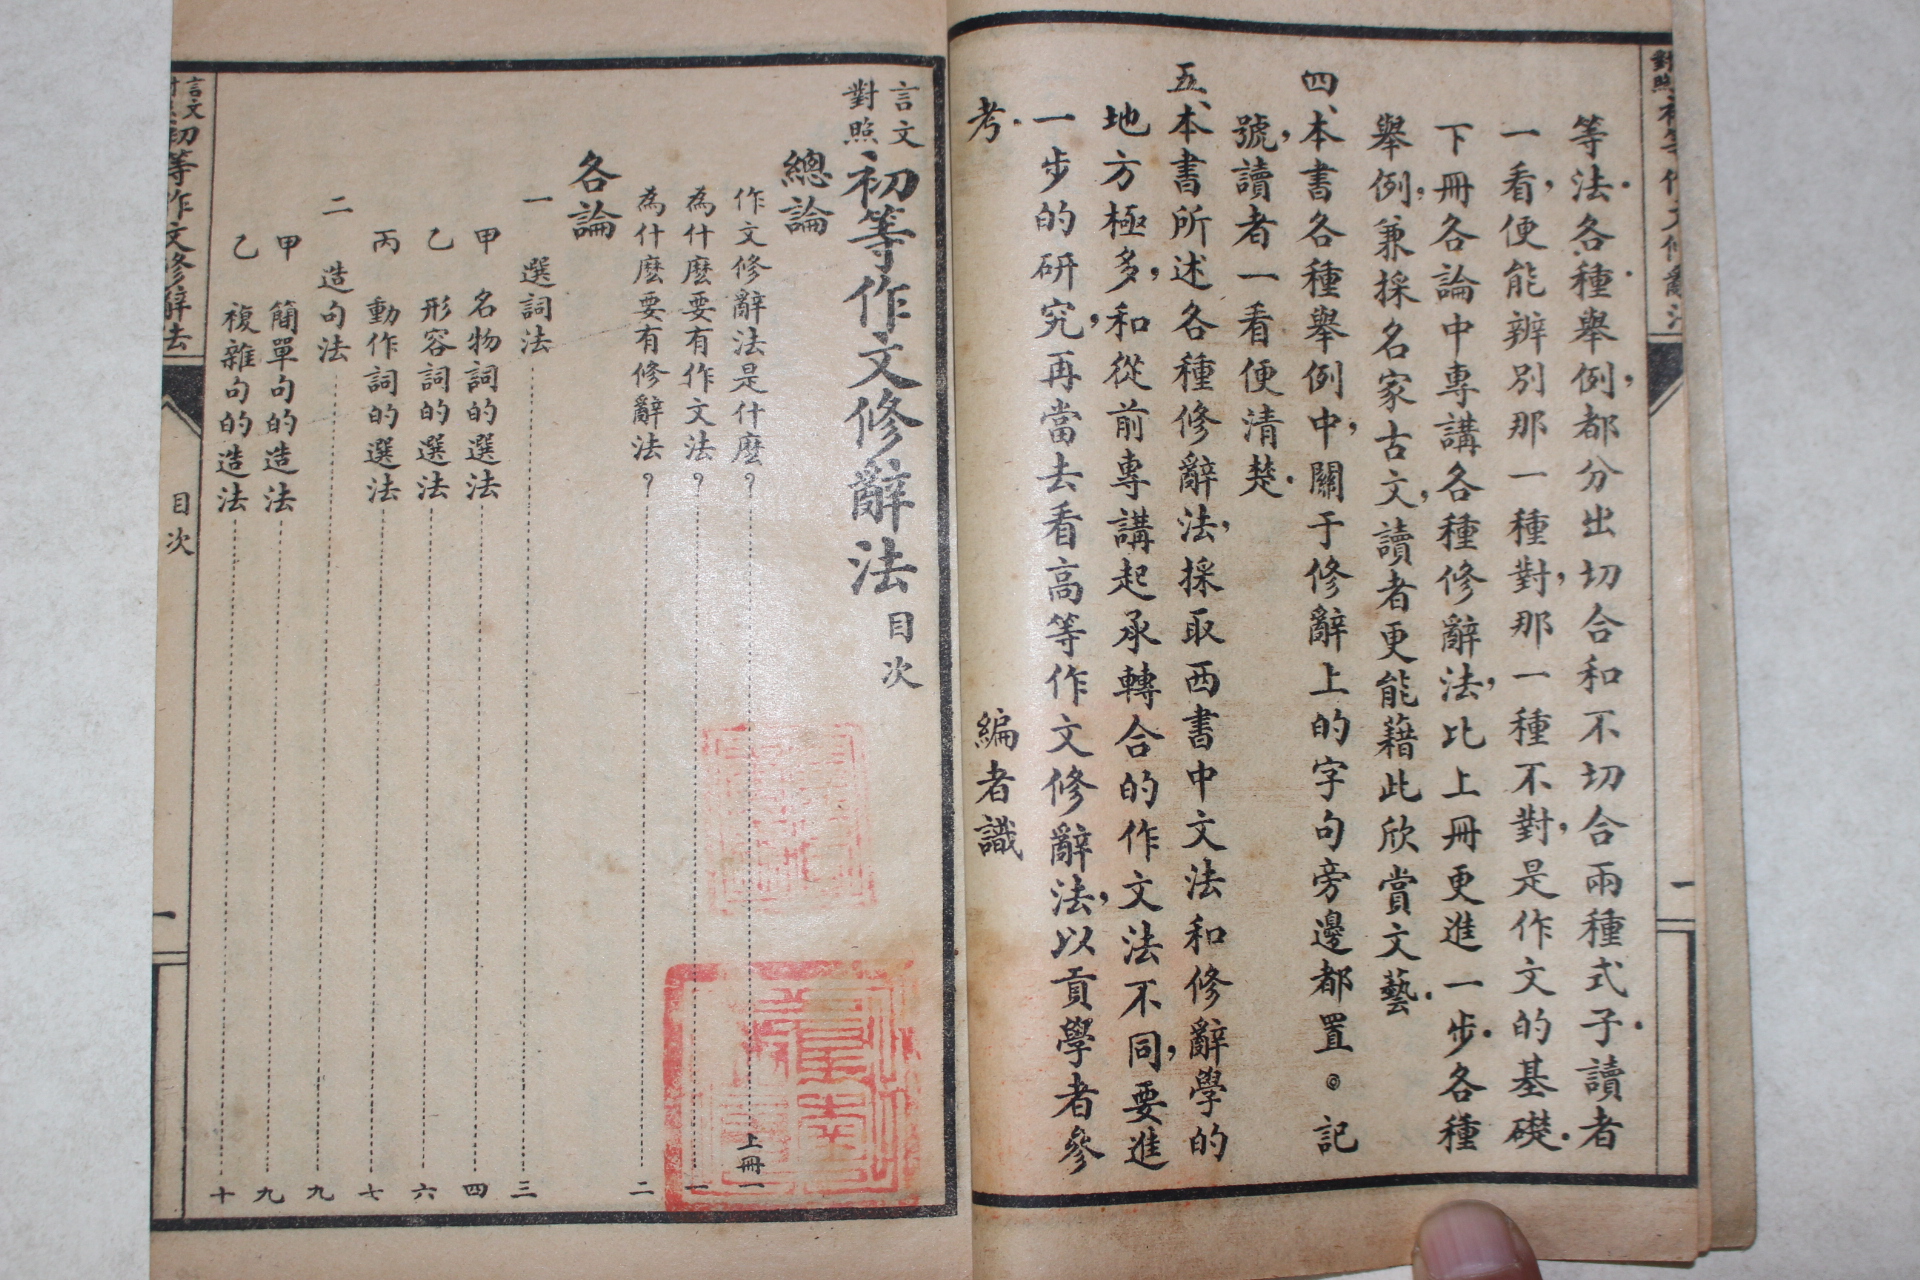 等法．各種．舉例，都分出切合和不切合兩種式子．讀者
一看，便能辨別那一種對，那一種不對，是作文的基礎．
下冊各論中專講各種修辭法，比上冊更進一步．各種
舉例，兼採名家古文，讀者更能藉此欣賞文藝．
四、本書各種舉例中，關于修辭上的字句旁邊都置◎記
號，讀者一看便清楚．
五、本書所述各種修辭法，採取西書中文法和修辭學的
地方極多，和從前專講起承轉合的作文法不同，要進
一步的研究，再當去看高等作文修辭法，以貢學者參
考．
編者識
言文對照初等作文修辭法目次
總論
作文修辭法是什麼？ 上冊一
為什麼要有作文法？ 一
為什麼要有修辭法？ 二
各論
一 選詞法 三
甲 名物詞的選法 四
乙 形容詞的選法 六
丙 動作詞的選法 七
二 造句法 九
甲 簡單句的造法 九
乙 複雜句的造法 十
初等作文修辭法 目次 一